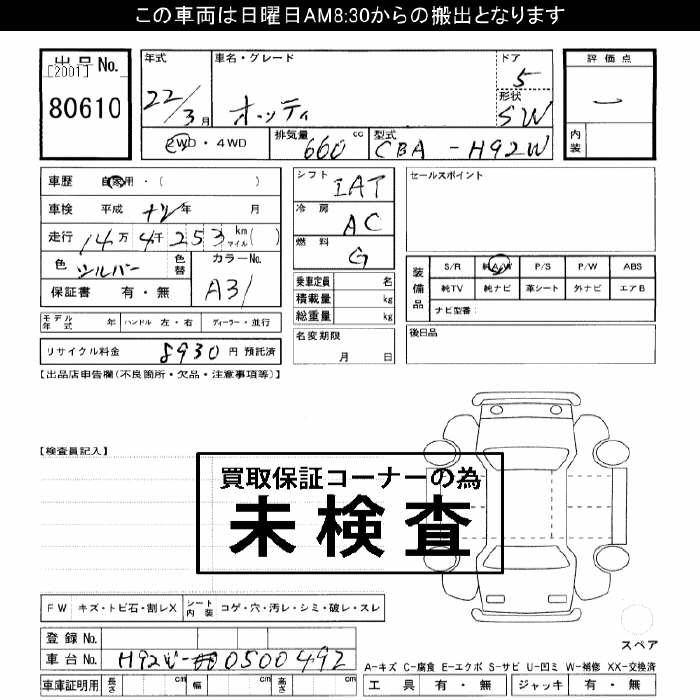 この車両は日曜日AM8:30からの搬出となります
出品No.
[2001]
80610
年式
22/3月
車名・グレード
オッティ
ドア
5
形状
SW
評価点
内装
2WD・4WD
排気量
660 cc
型式
CBA-H92W
車歴 自家用・( )
車検 平成 年 月
走行 14万 4千 253 km マイル( )
色 シルバー 色替
カラーNo.
A31
保証書 有・無
シフト
IAT
冷房
AC
燃料
G
セールスポイント
乗車定員 名
積載量 kg
総重量 kg
装備品
S/R 純A/W P/S P/W ABS
純TV 純ナビ 革シート 外ナビ エアB
ナビ型番:
モデル年式 年 ハンドル 左・右 ディーラー・並行
リサイクル料金 8930 円 預託済
名変期限
月 日
後日品
【出品店申告欄(不良箇所・欠品・注意事項等)】
【検査員記入】
買取保証コーナーの為
未検査
FW キズ・トビ石・割レX シート内装 コゲ・穴・汚レ・シミ・破レ・スレ
登録No.
車台No. H92W-0500492
車庫証明用 長さ 幅 高さ
スペア
A-キズ C-腐食 E-エクボ S-サビ U-凹ミ W-補修 XX-交換済
工具 有・無 ジャッキ 有・無